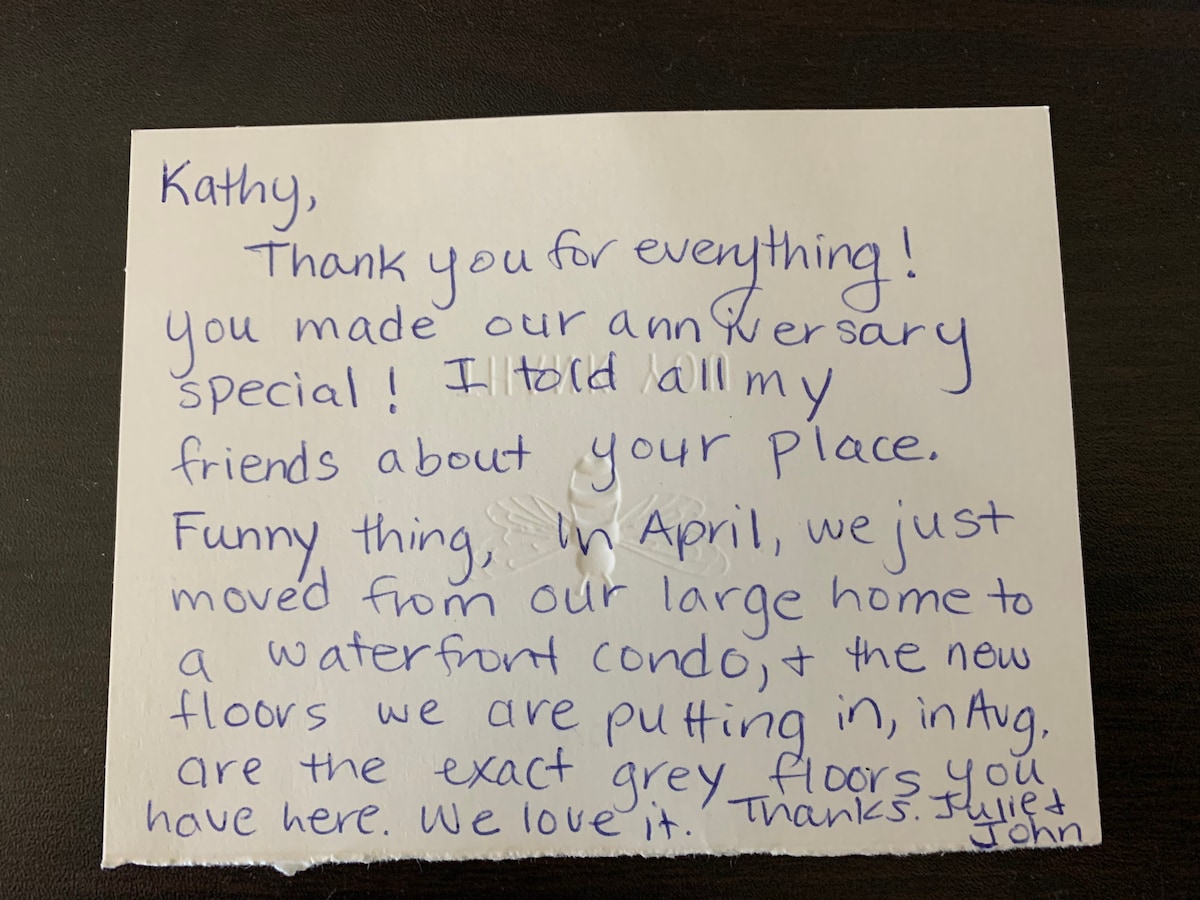 Kathy,
Thank you for everything!
you made our anniversary
special! I told all my
friends about your place.
Funny thing, In April, we just
moved from our large home to
a waterfront condo, + the new
floors we are putting in, in Aug.
are the exact grey floors you
have here. We love it. Thanks. Julie +
John
THANK YOU